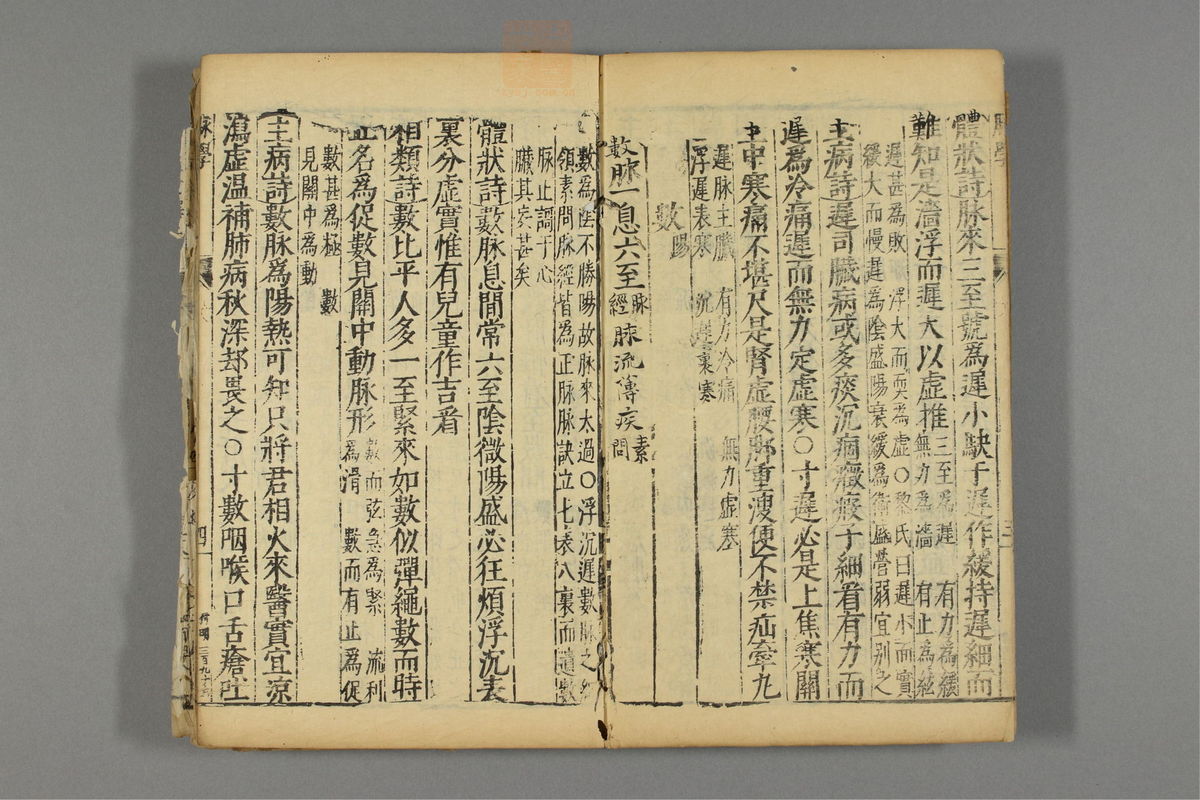 體狀詩脉來三至號爲遲小駃于遲作緩持遲細而
難知是濇浮而遲大以虛推三至爲遲 有力爲緩
無力爲濇 有止爲結
遲甚爲敗 浮大而耎爲虛○黎氏曰遲小而實
緩大而慢遲爲陰盛陽衰緩爲衛盛營弱宜別之
主病詩遲司臟病或多痰沉痼癥瘕子細看有力而
遲爲冷痛遲而無力定虛寒○寸遲必是上焦寒關
主中寒痛不堪尺是腎虛腰脚重溲便不禁疝牽丸
遲脉主臟 有力冷痛 無力虛寒
浮遲表寒 沉遲裏寒
數陽
數脉一息六至脉經脉流薄疾素問
數爲陰不勝陽故脉來太過○浮沉遲數脉之綱
領素問脉經皆爲正脉脉訣立七表八裏而遺數
脉止謌于心
臟其妄甚矣
體狀詩數脉息間常六至陰微陽盛必狂煩浮沉表
裏分虛實惟有兒童作吉看
相類詩數比平人多一至緊來如數似彈繩數而時
止名爲促數見關中動脉形數而弦急爲緊 流利
爲滑 數而有止爲促
數甚爲極 數
見關中爲動
主病詩數脉爲陽熱可知只將君相火來醫實宜凉
瀉虛温補肺病秋深却畏之○寸數咽喉口舌瘡吐
脉學
四